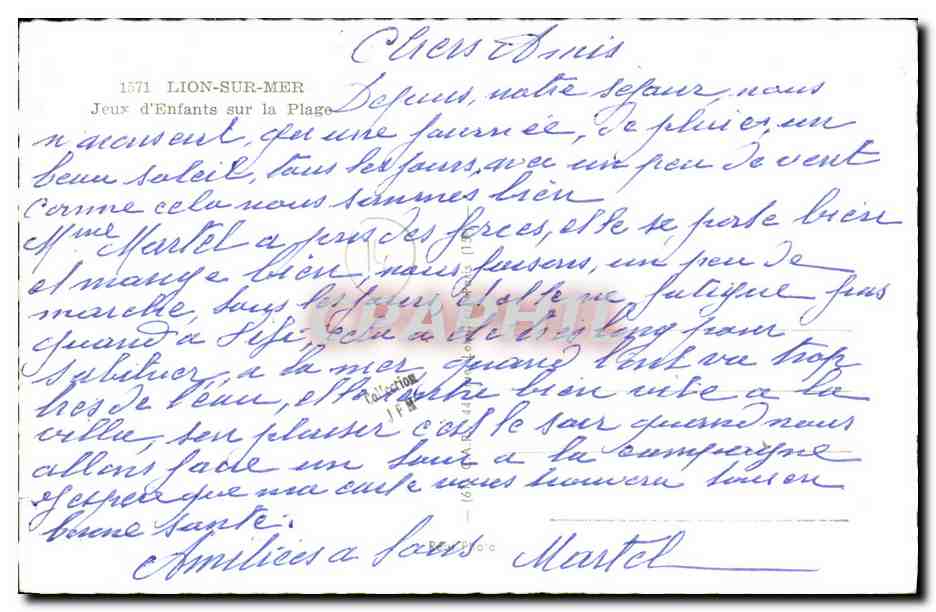 Chers Amis
1571 LION-SUR-MER
Jeux d'Enfants sur la Plage
Depuis, notre séjour, nous
n'avons eut, qu'une journée, de pluie, un
beau soleil, tous les jours, avec un peu de vent
comme cela nous sommes bien
Mme Martel a pris des forces, elle se, porte bien
et mange bien, nous faisons, un peu de
marche, tous les jours, et elle ne, fatigue pas
quand a Fifi, cela a été très long pour
s'abituer, a la mer, quand l'ont va trop
tres de l'eau, elle rentre bien vite a la
villa, son plaiser c'est le soir quand nous
allons faire un tour a la campagne
J'espère que ma carte vous trouvera tous en
bonne santé.
Amitiées a tous Martel
CPAPHIL
Collection
JFM
Photo